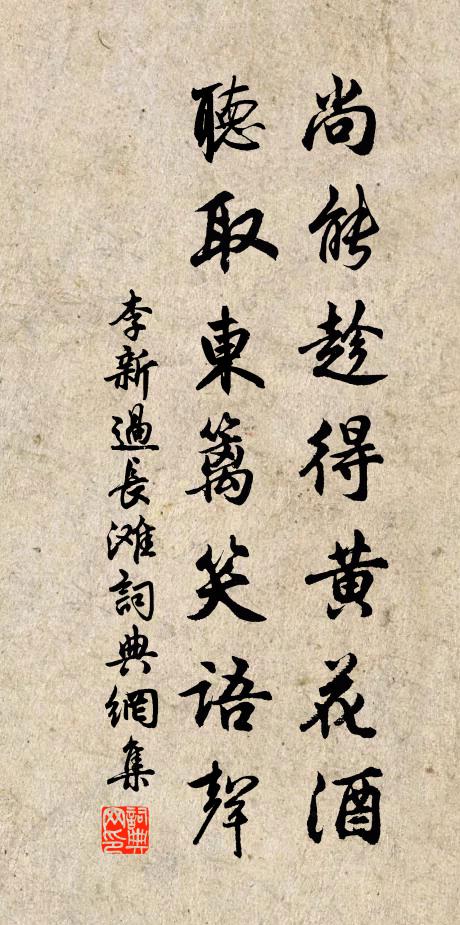 尚能趁得黄花酒
聽取東籬笑語聲
李新過長滩詞典網集
詞典网印